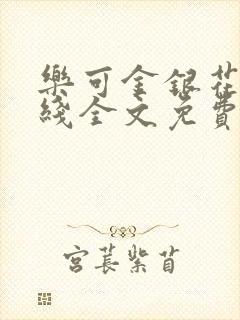 樂可金銀花
綫全文免費
宮萇紫苜